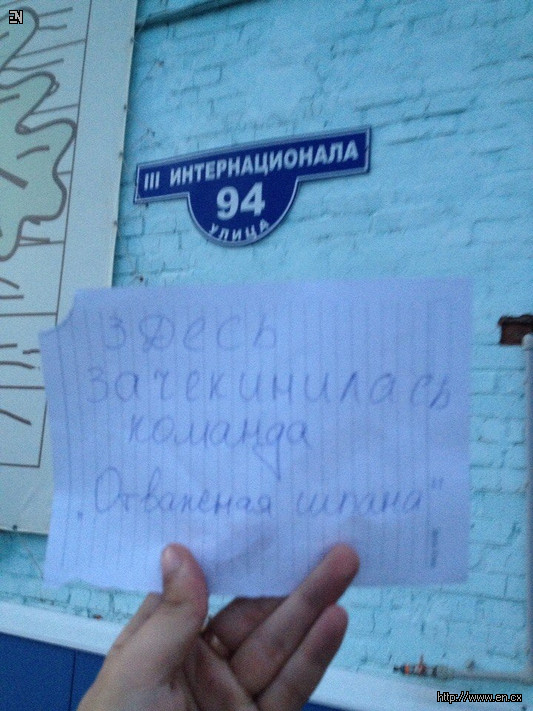 EN
III ИНТЕРНАЦИОНАЛА
94
УЛИЦА
здесь
зачекинилась
команда
„Отважная шпана"
http://www.en.cx